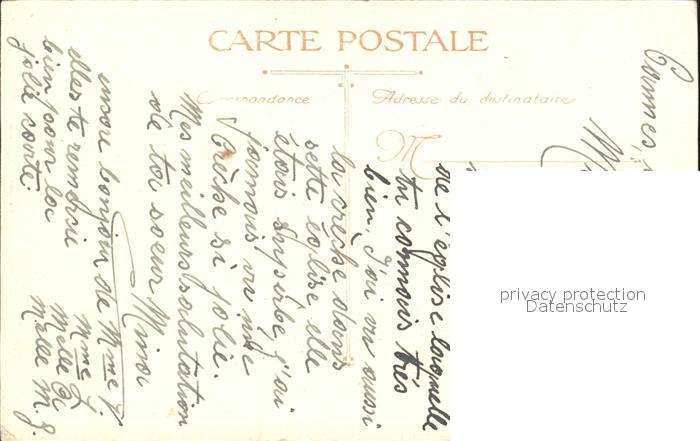 CARTE POSTALE
Correspondance
Adresse du destinataire
M
Cannes,
de l'église laquelle
tu connais très
bien. J'ai vu aussi
la crèche dans
sette église elle
étais superbe, j'ai
jamais vu une
crèche si jolie.
Mes meilleurs salutation
de toi soeur Mimi
encore bonjour de Mme J.
elles te remercie
bien pour la
jolie carte.
Mme J.
Melle
Melle M. J.
privacy protection
Datenschutz